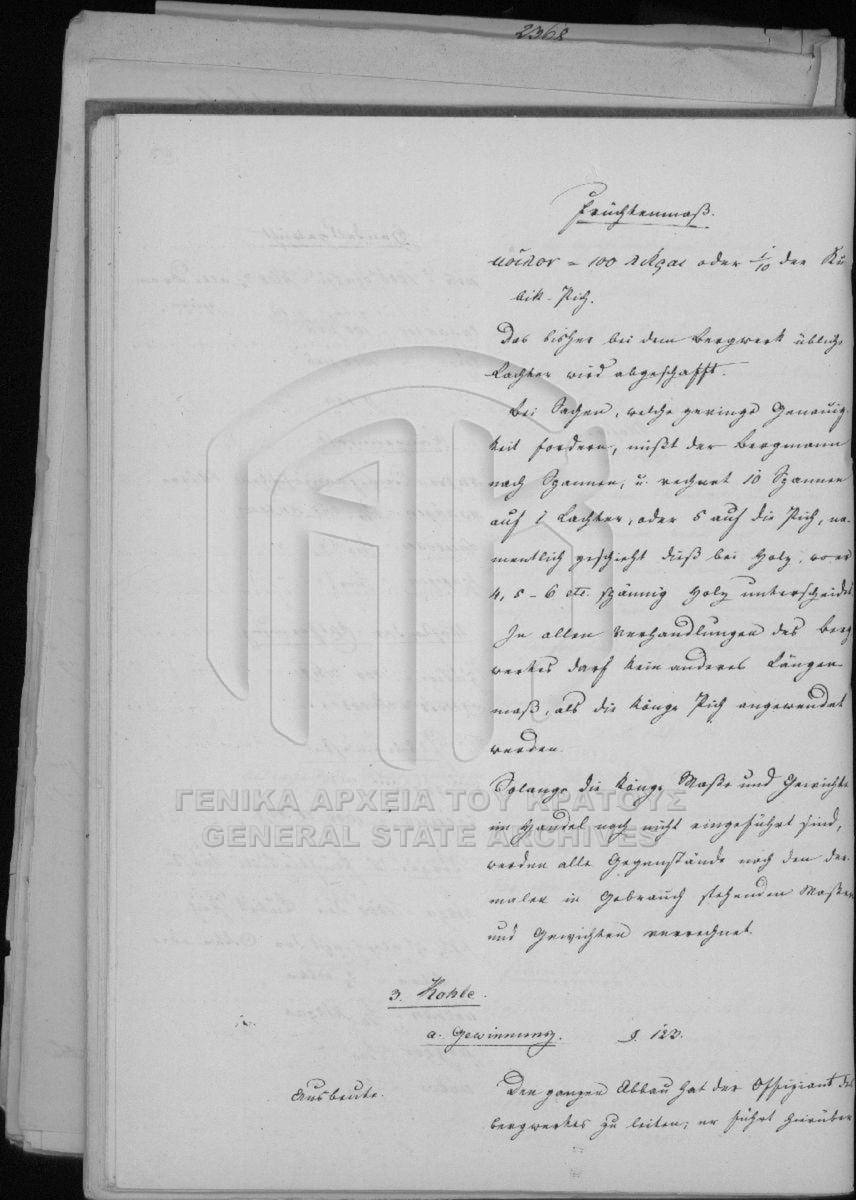 2368
Früchtenmaß.
κοῖλον = 100 λίτραι oder 1/10 der Ku-
bik-Pich.
Das bisher bei dem Bergwerk übliche
Lachter wird abgeschafft.
Bei Sachen, welche geringe Genauig-
keit fordern, mißt der Bergmann
nach Spannen, u. rechnet 10 Spannen
auf 1 Lachter, oder 5 auf die Pich, na-
mentlich geschieht dieß bei Holz, wo er
4, 5 - 6 etc. spännig Holz unterscheidet
In allen Verhandlungen des Berg-
werkes darf kein anderes Längen-
maß, als die Königl. Pich angewendet
werden.
Solange die Königl. Maße und Gewichte
im Handel noch nicht eingeführt sind,
werden alle Gegenstände nach den der-
malen in Gebrauch stehenden Maßen
und Gewichten verrechnet.
3. Kohle.
a. Gewinnung. §. 123.
Ausbeute.
Den ganzen Abbau hat der Offiziant des
Bergwerkes zu leiten; er führt hierüber
ΓΕΝΙΚΑ ΑΡΧΕΙΑ ΤΟΥ ΚΡΑΤΟΥΣ
GENERAL STATE ARCHIVES